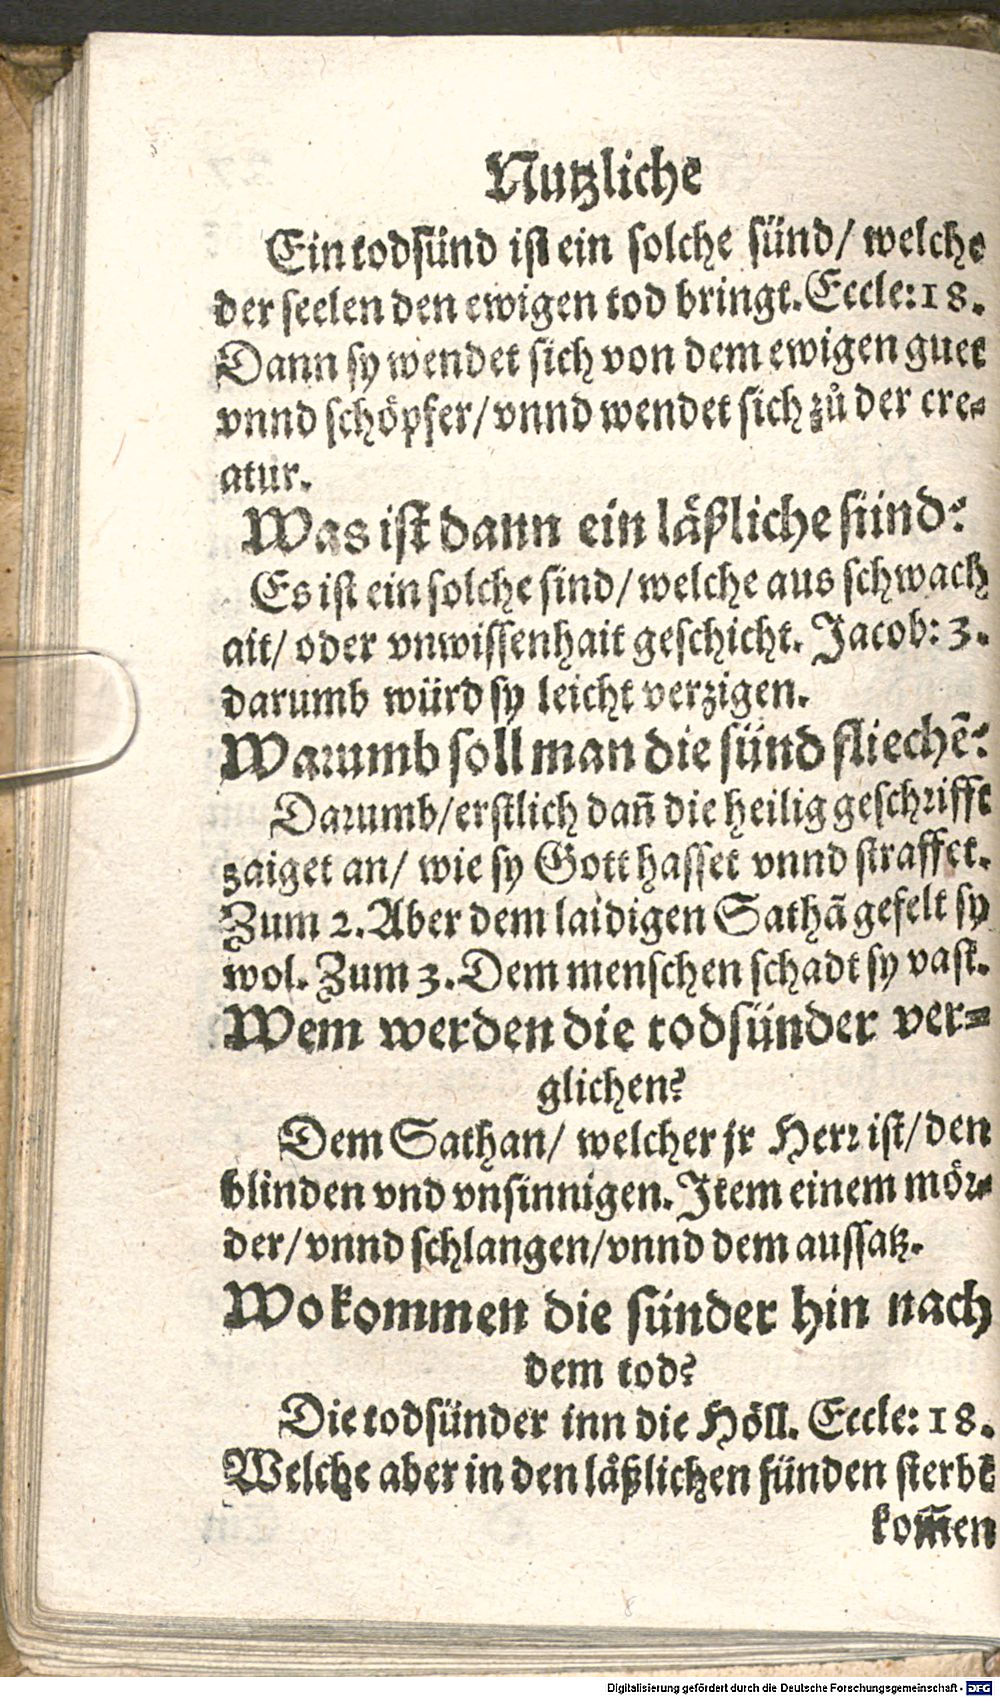 Nutzliche
Ein todsünd ist ein solche sünd/ welche
der seelen den ewigen tod bringt. Eccle: 18.
Dann sy wendet sich von dem ewigen guet
vnnd schöpfer/ vnnd wendet sich zů der cre-
atur.
Was ist dann ein läßliche sünd?
Es ist ein solche sind/ welche aus schwach
ait/ oder vnwissenhait geschicht. Jacob: 3.
darumb würd sy leicht verzigen.
Warumb soll man die sünd fliechē?
Darumb/ erstlich dan̄ die heilig geschrifft
zaiget an/ wie sy Gott hasset vnnd straffet.
Zum 2. Aber dem laidigen Sathā gefelt sy
wol. Zum 3. Dem menschen schadt sy vast.
Wem werden die todsünder ver-
glichen?
Dem Sathan/ welcher jr Herr ist/ den
blinden vnd vnsinnigen. Item einem mör-
der/ vnnd schlangen/ vnnd dem aussatz.
Wo kommen die sünder hin nach
dem tod?
Die todsünder inn die Höll. Eccle: 18.
Welche aber in den läßlichen sünden sterbē
kom̄en
Digitalisierung gefördert durch die Deutsche Forschungsgemeinschaft - DFG